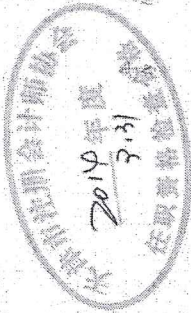 天津市注册会计师协会
2014年度
3.31
任职资格检查